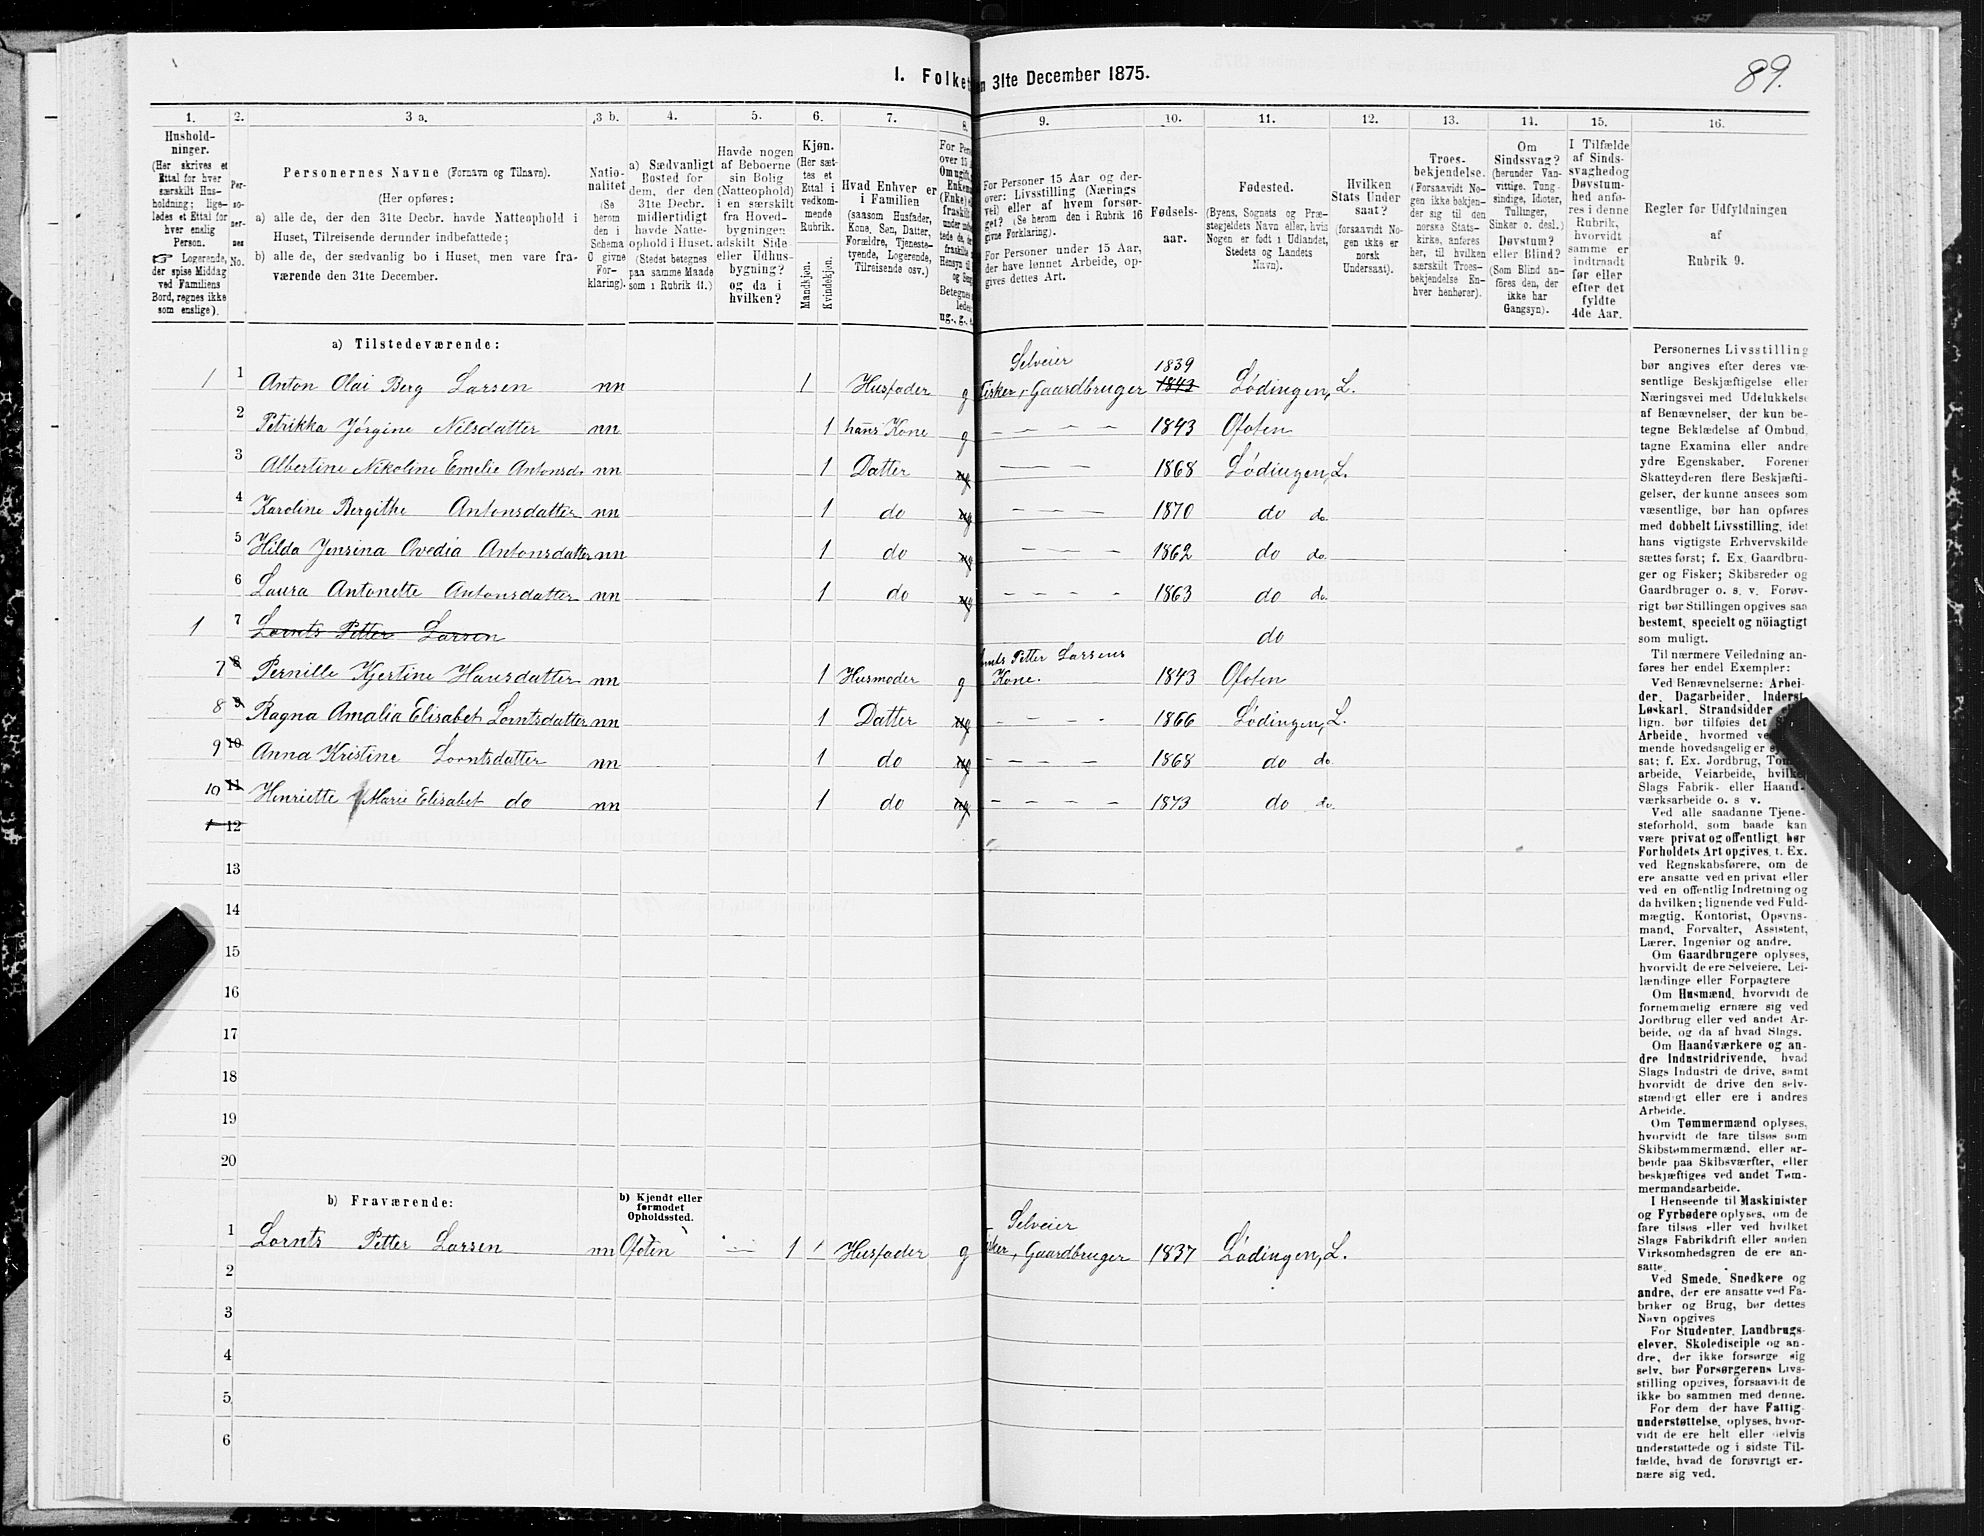 89.
I. Folket
n 31te December 1875.
1. 2. 3 a. 3 b. 4. 5. 6. 7. 8. 9. 10. 11. 12. 13. 14. 15. 16.
Hushold-
ninger.
(Her skrives et
Ettal for hver
særskilt Hus-
holdning; lige-
ledes et Ettal for
hver enslig
Person.
☞ Logerende,
der spise Middag
ved Familiens
Bord, regnes ikke
som enslige).
Per-
so-
ner-
nes
No.
Personernes Navne (Fornavn og Tilnavn).
(Her opføres:
a) alle de, der den 31te Decbr. havde Natteophold i
Huset, Tilreisende derunder indbefattede;
b) alle de, der sædvanlig bo i Huset, men vare fra-
værende den 31te December.
Natio-
nalitet
(Se
herom
den i
Schema
O givne
For-
klaring).
a) Sædvanligt
Bosted for
dem, der den
31te Decbr.
midlertidigt
havde Natte-
ophold i Huset.
(Stedet betegnes
paa samme Maade
som i Rubrik 11.)
Havde nogen
af Beboerne
sin Bolig
(Natteophold)
i en særskilt
fra Hoved-
bygningen
adskilt Side-
eller Udhus-
bygning?
og da i
hvilken?
Kjøn.
(Her sæt-
tes et
Ettal i
vedkom-
mende
Rubrik.
Mandkjøn.
Kvindekjøn.
Hvad Enhver er
i Familien
(saasom Husfader,
Kone, Søn, Datter,
Forældre, Tjeneste-
tyende, Logerende,
Tilreisende osv.)
For Pers
over 15
Om ugift,
Enkem
(Enke) e
fraskilt
under
tede de,
fraskilte
Hensyn til
og Seng
Betegnes
ledes
ug., g., e
For Personer 15 Aar og der-
over: Livsstilling (Nærings
vei) eller af hvem forsør-
get? (Se herom den i Rubrik 16
givne Forklaring).
For Personer under 15 Aar,
der have lønnet Arbeide, op-
gives dettes Art.
Fødsels-
aar.
Fødested.
(Byens, Sognets og Præ-
stegjeldets Navn eller, hvis
Nogen er født i Udlandet,
Stedets og Landets
Navn).
Hvilken
Stats Under
saat?
(forsaavidt No-
gen ikke er
norsk
Undersaat).
Troes-
bekjendelse.
(Forsaavidt No-
gen ikke bekjen-
der sig til den
norske Stats-
kirke, anføres
her, til hvilken
særskilt Troes-
bekjendelse En-
hver henhører).
Om
Sindssvag?
(herunder Van-
vittige, Tung-
sindige, Idioter,
Tullinger,
Sinker o. desl.)
Døvstum?
eller Blind?
(Som Blind an-
føres den, der
ikke har
Gangsyn).
I Tilfælde
af Sinds-
svaghed og
Døvstum-
hed anfø-
res i denne
Rubrik,
hvorvidt
samme er
indtraadt
før eller
efter det
fyldte
4de Aar.
Regler før Udfyldningen
af
Rubrik 9.
a) Tilstedeværende:
Selveier 1839
1 1 Anton Olai Berg Larsen nn 1 Husfader g Fisker, Gaardbruger 1843 Lödingen, L.
2 Petrikka Jörgine Nilsdatter nn 1 hans Kone g – – – – 1843 Ofoten
3 Albertine Nikoline Emelie Antonsd. nn 1 Datter ug – – – 1868 Lödingen, L.
4 Karoline Bergithe Antonsdatter nn 1 do ug – – – – 1870 do do
5 Hilda Jensina Ovedia Antonsdatter nn 1 do ug – – – – 1862 do do.
6 Laura Antonette Antonsdatter nn 1 do ug – – – – 1863 do do.
1 7 Lornts Petter Larsen do
7 8 Pernille Kjertine Hansdatter nn 1 Husmoder g Lornts Petter Larsens
Kone. 1843 Ofoten
8 9 Ragna Amalia Elisabet Lorntsdatter nn 1 Datter ug – – – – 1866 Lödingen, L.
9 10 Anna Kristine Lorntsdatter nn 1 do ug – – – – 1868 do do.
10 11 Henriette Marie Elisabet do nn 1 do ug – – – – 1873 do do.
1 12
13
14
15
16
17
18
19
20
b) Fraværende:
b) Kjendt eller
formodet
Opholdssted.
Selveier
1 Lornts Petter Larsen nn Ofoten 1 Husfader g Fisker, Gaardbruger 1837 Lödingen, L.
2
3
4
5
6
Personernes Livsstilling
bør angives efter deres væ-
sentlige Beskjæftigelse eller
Næringsvei med Udelukkelse
af Benævnelser, der kun be-
tegne Beklædelse af Ombud,
tagne Examina eller andre
ydre Egenskaber. Forener
Skatteyderen flere Beskjæfti-
gelser, der kunne ansees som
væsentlige, bør han opføres
med dobbelt Livsstilling, idet
hans vigtigste Erhvervskilde
sættes først; f. Ex. Gaardbru-
ger og Fisker; Skibsreder og
Gaardbruger o. s. v. Forøv-
rigt bør Stillingen opgives saa
bestemt, specielt og nöiagtigt
som muligt.
Til nærmere Veiledning an-
føres her endel Exempler:
Ved Benævnelserne: Arbei-
der, Dagarbeider, Inderst,
Løskarl, Strandsidder
lign. bør tilføies det
Arbeide, hvormed
mende hovedsagelig er
sat; f. Ex. Jordbrug,
arbeide, Veiarbeide, hvilket
Slags Fabrik- eller Haand-
værksarbeide o. s. v.
Ved alle saadanne Tjene-
steforhold, som baade kan
være privat og offentligt, bør
Forholdets Art opgives, t. Ex.
ved Regnskabsførere, om de
ere ansatte ved en privat eller
ved en offentlig Indretning og
da hvilken; lignende ved Fuld-
mægtig, Kontorist, Opsyns-
mand, Forvalter, Assistent,
Lærer, Ingeniør og andre.
Om Gaardbrugere oplyses,
hvorvidt de ere Selveiere, Lei-
lændinge eller Forpagtere
Om Husmænd, hvorvidt de
fornemmelig ernære sig ved
Jordbrug eller ved andet Ar-
beide, og da af hvad Slags.
Om Haandværkere og an-
dre Industridrivende, hvad
Slags Industri de drive, samt
hvorvidt de drive den selv-
stændigt eller ere i andres
Arbeide.
Om Tømmermænd oplyses,
hvorvidt de fare tilsøs som
Skibstømmermænd, eller ar-
beide paa Skibsværfter, eller
beskjæftiges ved andet Tøm-
mermandsarbeide.
I Henseende til Maskinister
og Fyrbødere oplyses, om de
fare tilsøs eller ved hvilket
Slags Fabrikdrift eller anden
Virksomhedsgren de ere an-
satte.
Ved Smede, Snedkere og
andre, der ere ansatte ved Fa-
briker og Brug, bør dettes
Navn opgives
For Studenter, Landbrugs-
elever, Skoledisciple og an-
dre, der ikke forsørge sig
selv, bør Forsørgerens Livs-
stilling opgives, forsaavidt de
ikke bo sammen med denne.
For dem der have Fattig-
understøttelse, oplyses, hvor-
vidt de ere helt eller delvis
understøttede og i sidste Til-
fælde, hvad de forøvrigt er-
nære sig ved.